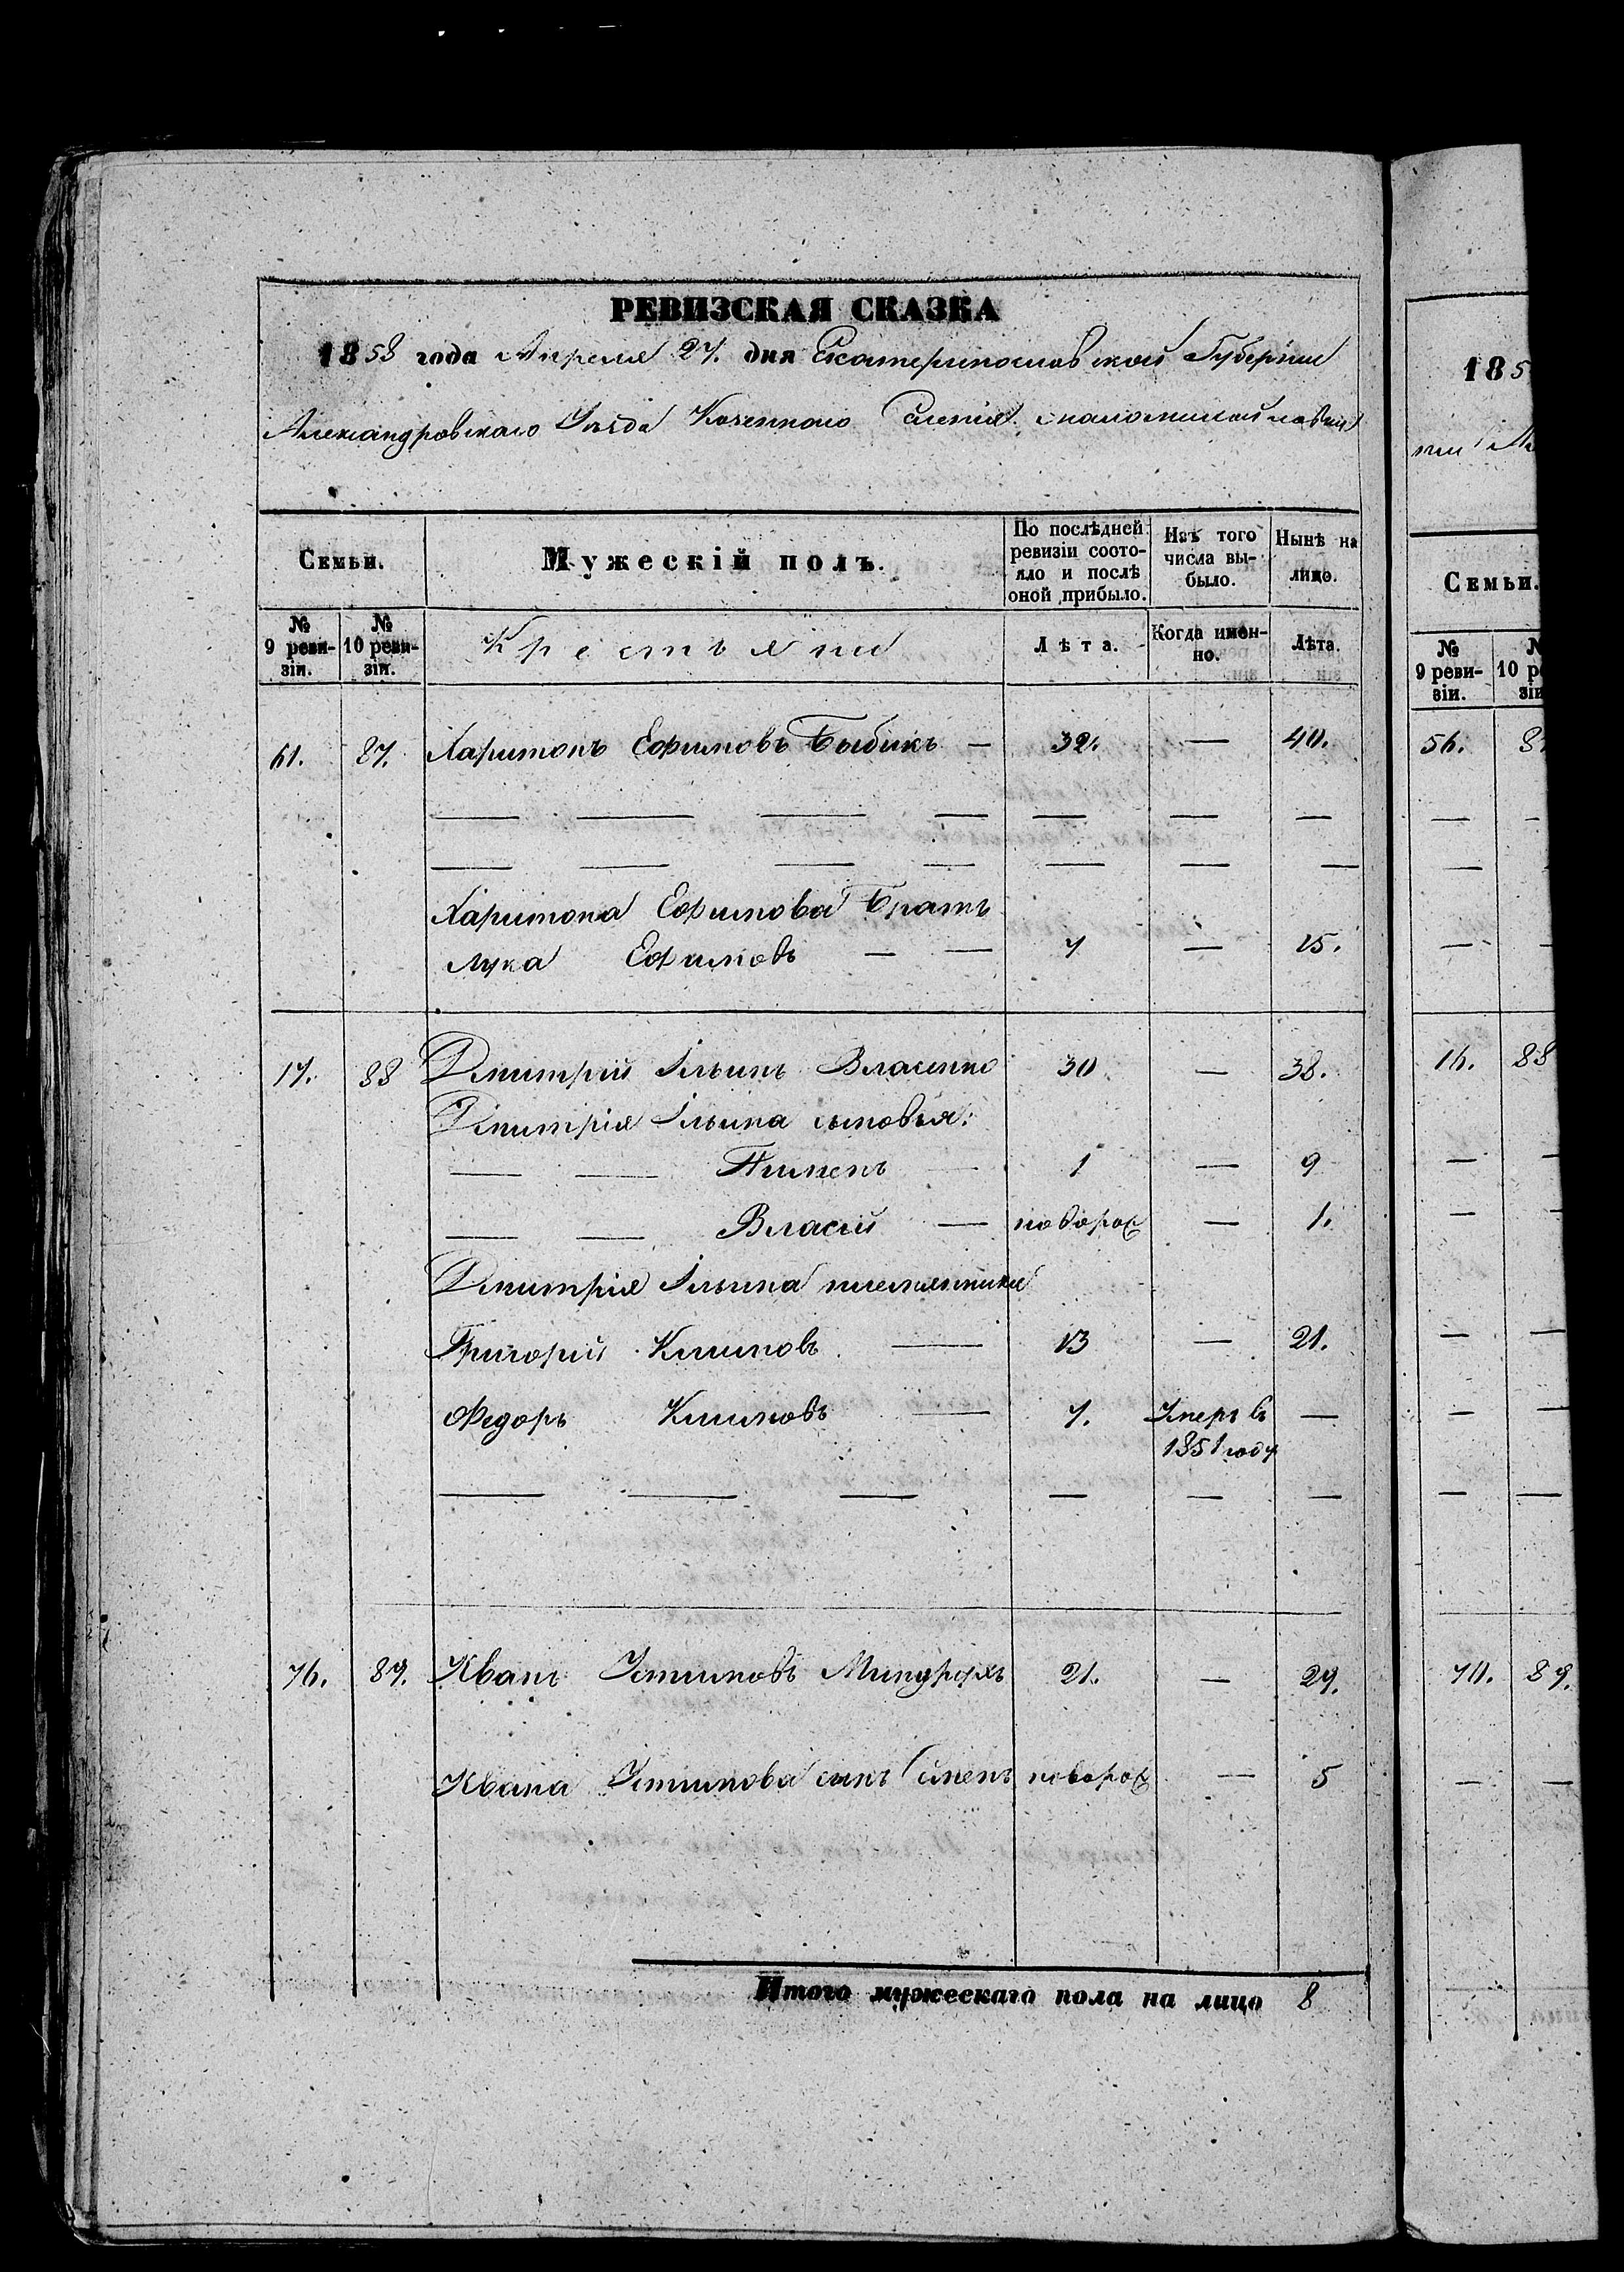 РЕВИЗСКАЯ СКАЗКА
1858 года Апреля 27. дня Екатеринославской Губернии
Александровскаго Уѣзда Казеннаго Селенія
Семьи.
Мужескій полъ.
По послѣдней ревизіи состояло и послѣ оной прибыло.
Изъ того числа выбыло.
Нынѣ на лицо.
№ 9 ревизіи.
№ 10 ревизіи.
Крестьяне
Лѣта.
Когда именно.
Лѣта.
61. 87. Харитонъ Ефимовъ Бабикъ — 32. — 40.
— — — — — — —
— — — — — — —
Харитона Ефимова Братъ
Лука Ефимовъ — — 7 — 15.
17. 88 Дмитрій Ильинъ Власенко 30 — 38.
Дмитрія Ильина сыновья:
— — Пименъ — 1 — 9
— — Власій — новорож — 1.
Дмитрія Ильина племянники
Григорій Климовъ — 13 — 21.
Федоръ Климовъ — 7. Умеръ въ —
1851 году
— — — — — —
76. 89. Иванъ Устимовъ 21. — 29.
Ивана Устимова сынъ Семенъ новорож — 5
Итого мужескаго пола на лицо 8
185
Семьи.
№ 9 ревизіи.
56.
— —
— —
— —
16. 88
— —
—
— —
— —
— —
70. 89.
— —